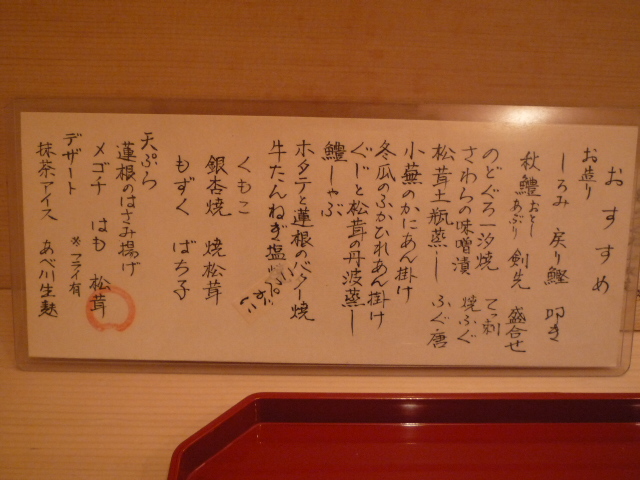 おすすめ
お造り
しろみ 戻り鰹 叩き
秋鱧 おとし あぶり 剣先 盛合せ
のどぐろ一汐焼 てっ刺
さわらの味噌漬 焼ふぐ
松茸土瓶蒸し ふぐ唐
小蕪のかにあん掛け
冬瓜のふかひれあん掛け
ぐじと松茸の丹波蒸し
鱧しゃぶ
ホタテと蓮根のバター焼
牛たんねぎ塩
くもこ
銀杏焼 焼松茸
もずく ばち子
天ぷら
蓮根のはさみ揚げ
メゴチ はも 松茸
デザート ※フライ有
抹茶アイス あべ川生麩